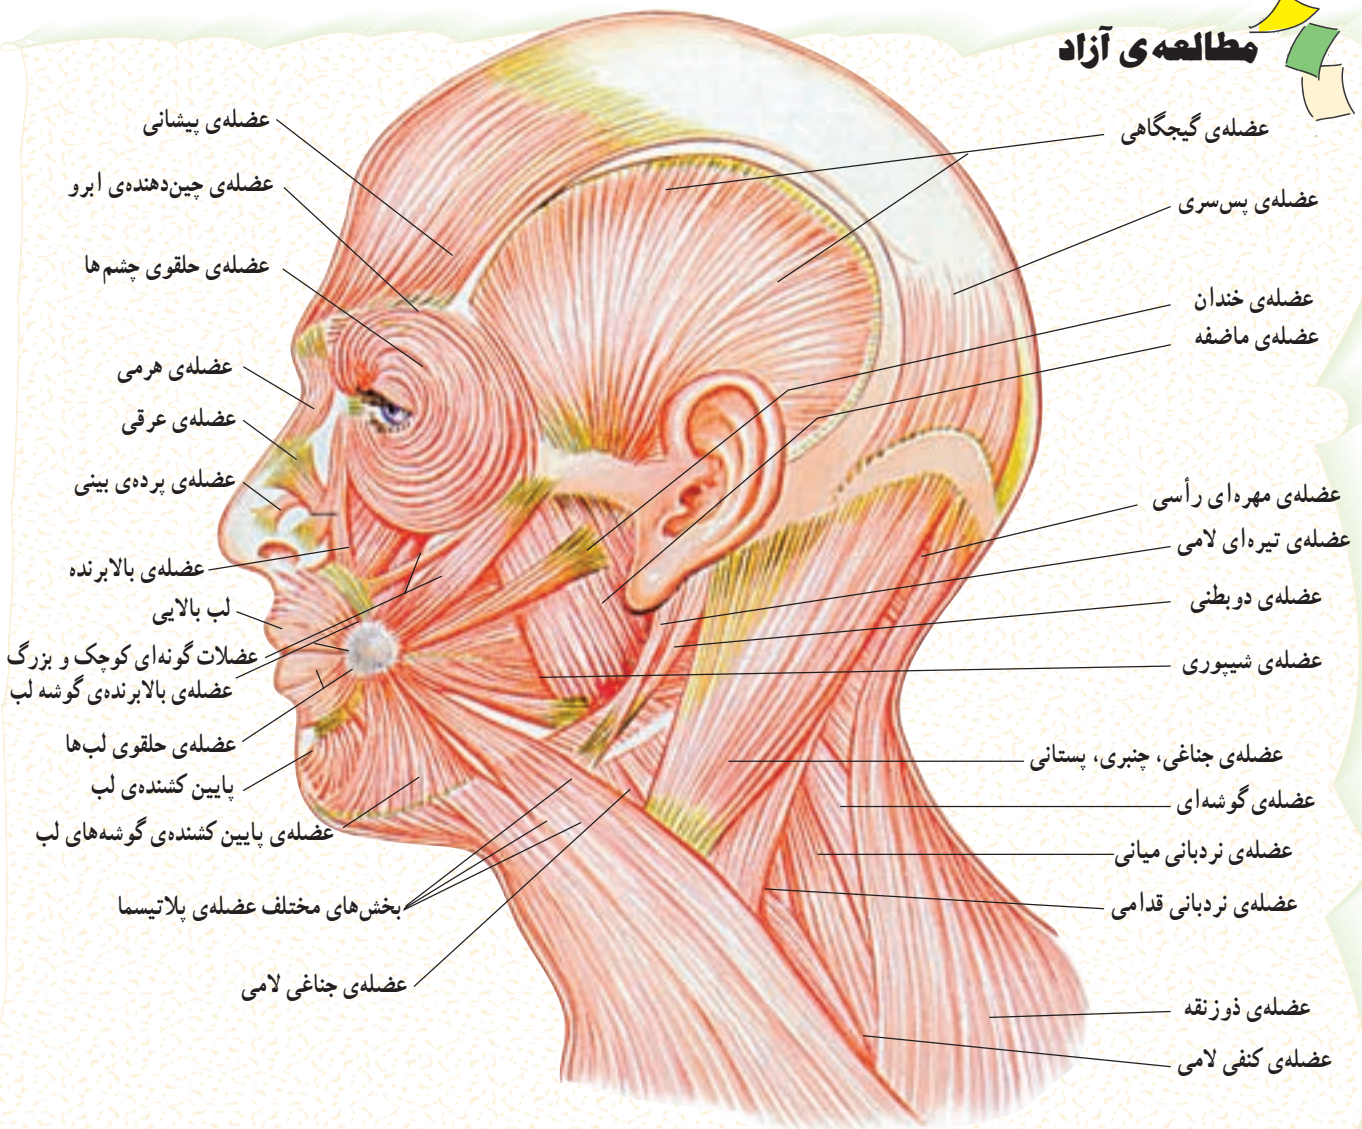 مطالعه‌ی آزاد
عضله‌ی گیجگاهی
عضله‌ی پس‌سری
عضله‌ی خندان
عضله‌ی ماضفه
عضله‌ی مهره‌ای رأسی
عضله‌ی تیره‌ای لامی
عضله‌ی دوبطنی
عضله‌ی شیپوری
عضله‌ی جناغی، چنبری، پستانی
عضله‌ی گوشه‌ای
عضله‌ی نردبانی میانی
عضله‌ی نردبانی قدامی
عضله‌ی ذوزنقه
عضله‌ی کنفی لامی
عضله‌ی پیشانی
عضله‌ی چین‌دهنده‌ی ابرو
عضله‌ی حلقوی چشم‌ها
عضله‌ی هرمی
عضله‌ی عرقی
عضله‌ی پرده‌ی بینی
عضله‌ی بالابرنده
لب بالایی
عضلات گونه‌ای کوچک و بزرگ
عضله‌ی بالابرنده‌ی گوشه لب
عضله‌ی حلقوی لب‌ها
پایین کشنده‌ی لب
عضله‌ی پایین کشنده‌ی گوشه‌های لب
بخش‌های مختلف عضله‌ی پلاتیسما
عضله‌ی جناغی لامی